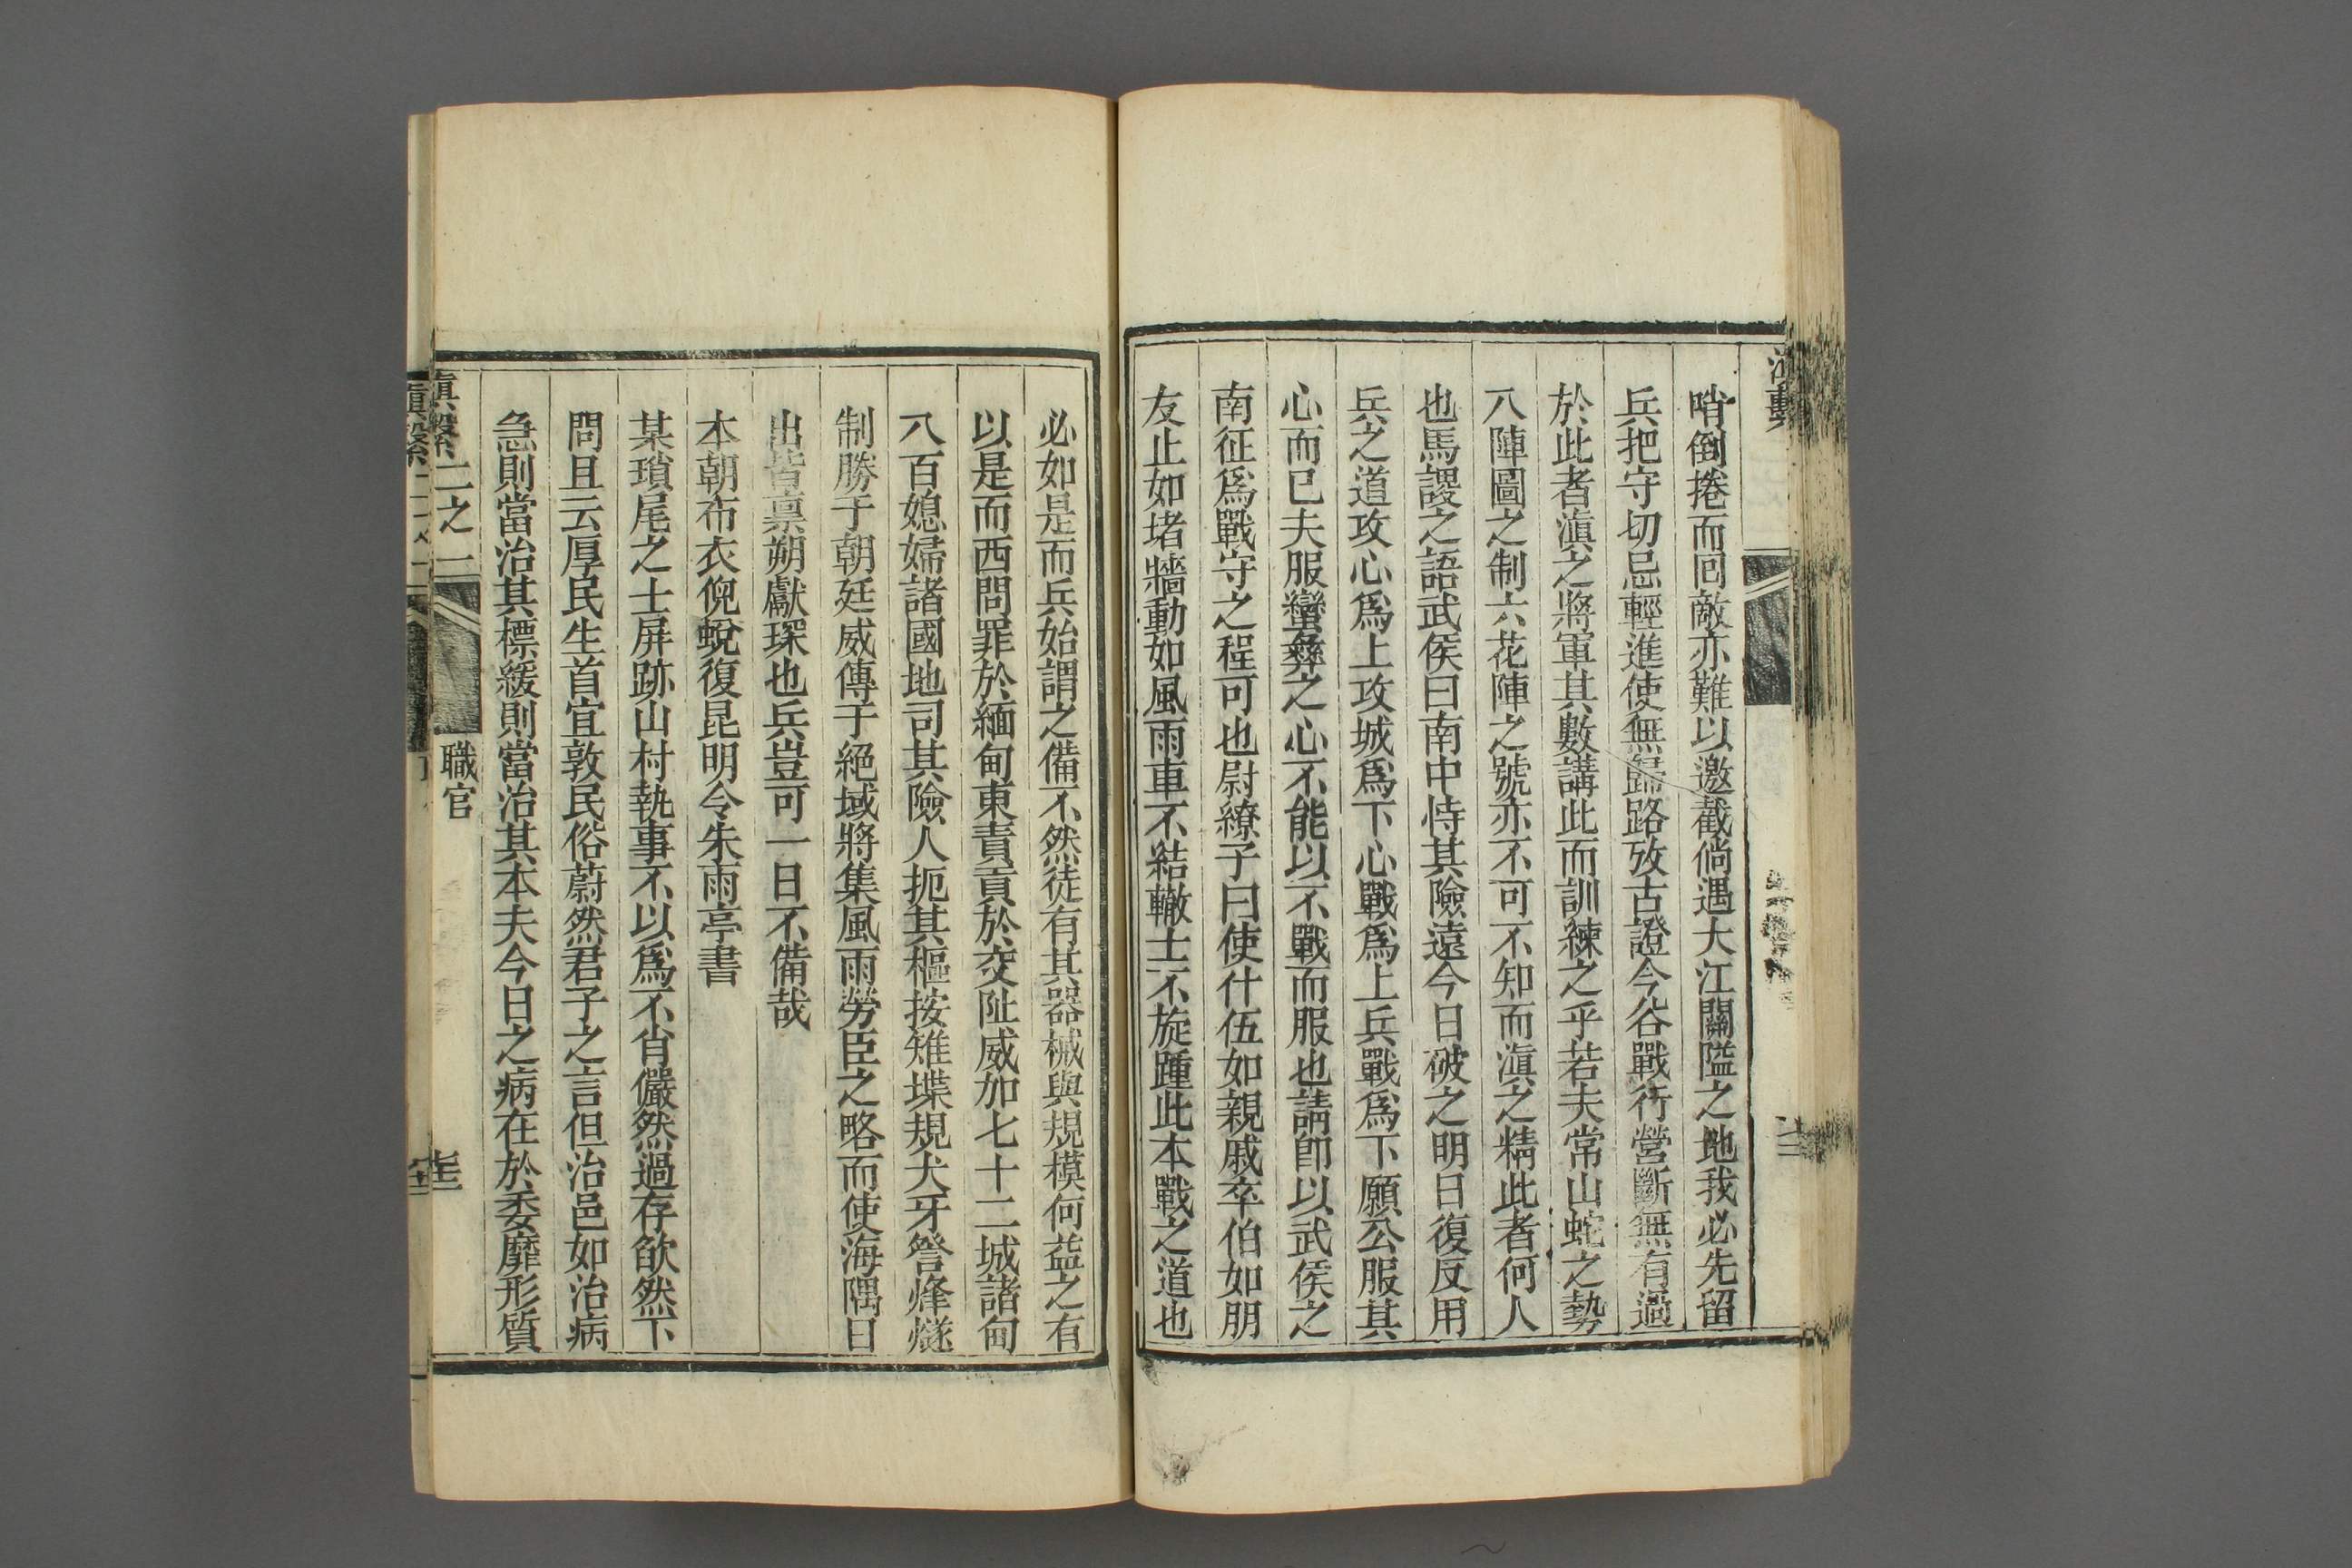 哨倒捲而囘敵亦難以邀截倘遇大江關隘之地我必先留
兵把守切忌輕進使無歸路攷古證今谷戰行營斷無有過
於此者滇之將軍其數講此而訓練之乎若夫常山蛇之勢
八陣圖之制六花陣之號亦不可不知而滇之精此者何人
也馬謖之語武侯曰南中恃其險遠今日破之明日復反用
兵之道攻心爲上攻城爲下心戰爲上兵戰爲下願公服其
心而已夫服蠻彝之心不能以不戰而服也請卽以武侯之
南征爲戰守之程可也尉繚子曰使什伍如親戚卒伯如朋
友止如堵牆動如風雨車不結轍士不旋踵此本戰之道也
必如是而兵始謂之備不然徒有其器械與規模何益之有
以是而西問罪於緬甸東責貢於交阯威加七十二城諸甸
八百媳婦諸國地司其險人扼其樞按雉堞規犬牙詧烽燧
制勝于朝廷威傳于絕域將集風雨勞臣之略而使海隅日
出皆禀朔獻琛也兵豈可一日不備哉
本朝布衣倪蛻復昆明令朱雨亭書
某瑣尾之士屏跡山村執事不以爲不肖儼然過存欿然下
問且云厚民生首宜敦民俗蔚然君子之言但治邑如治病
急則當治其標緩則當治其本夫今日之病在於委靡形質
滇繫二之一
職官